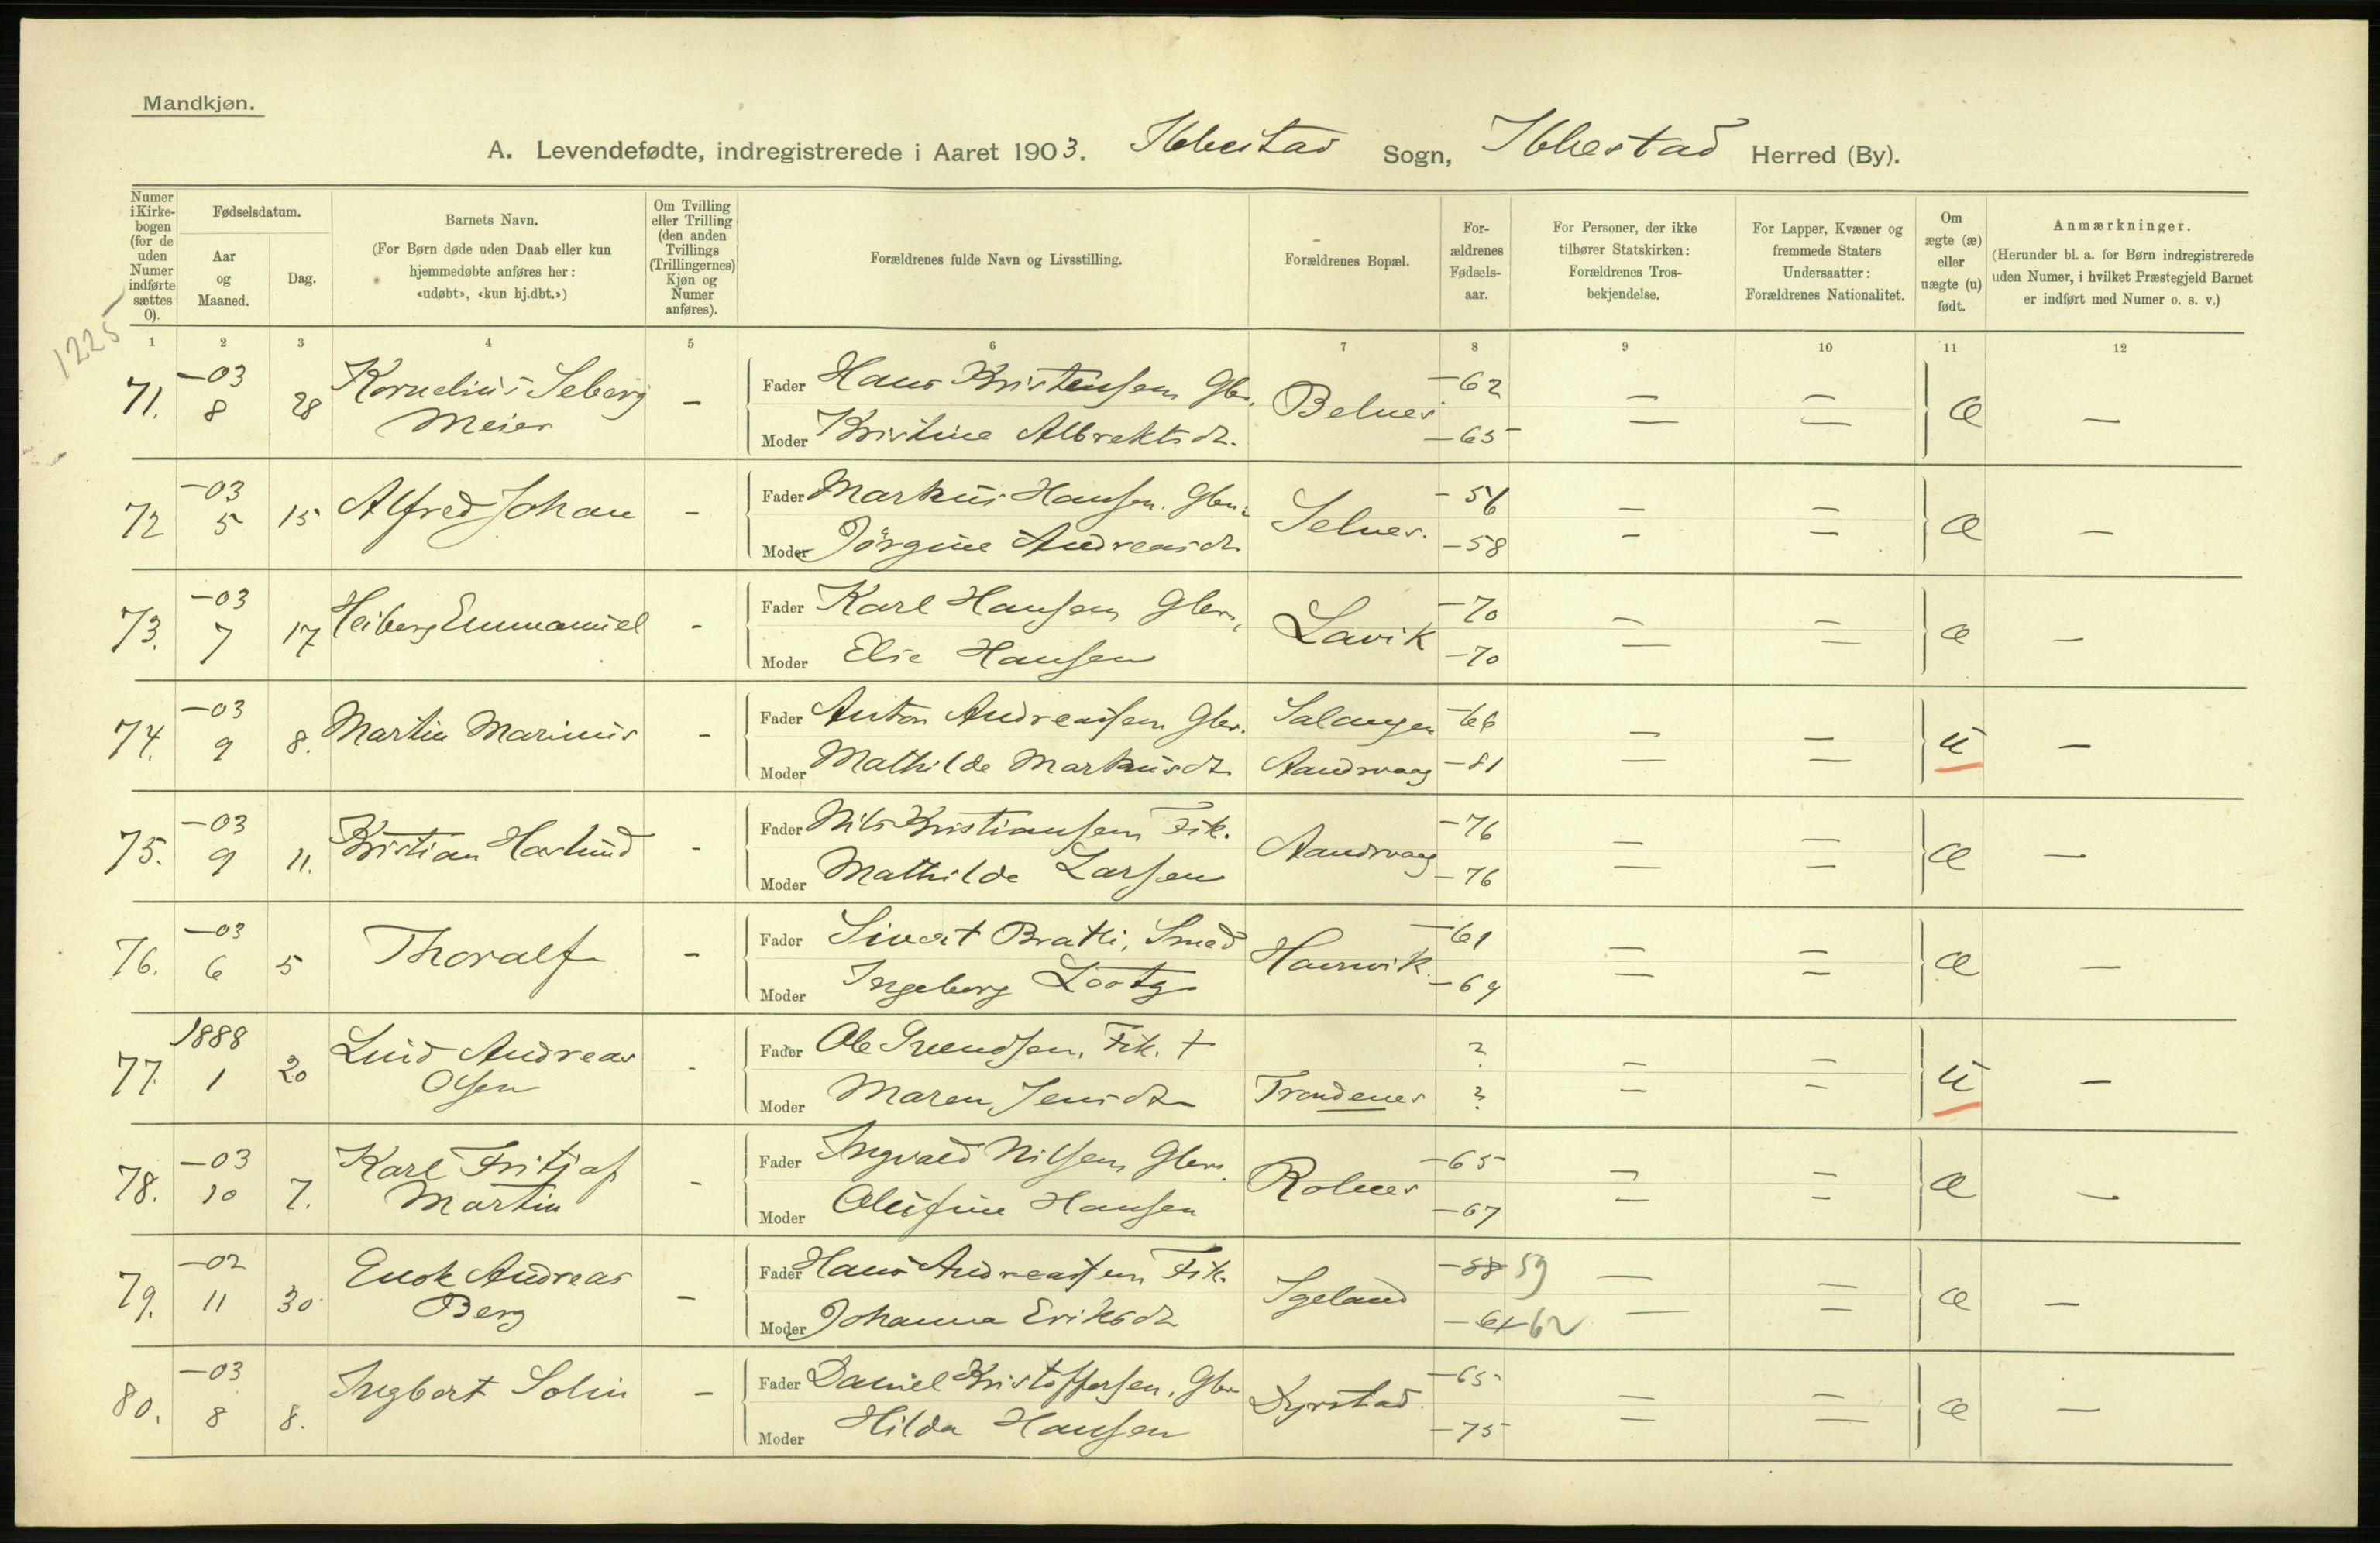 Mandkjøn.
A. Levendefødte, indregistrerede i Aaret 1903. Ibbestad Sogn, Ibbestad Herred (By).
Numer i Kirkebogen (for de uden Numer indførte sættes 0).
Fødselsdatum.
Aar og Maaned.
Dag.
Barnets Navn.
(For Børn døde uden Daab eller kun hjemmedøbte anføres her: «udøbt», «kun hj.dbt.»)
Om Tvilling eller Trilling (den anden Tvillings (Trillingernes) Kjøn og Numer anføres).
Forældrenes fulde Navn og Livsstilling.
Forældrenes Bopæl.
Forældrenes Fødselsaar.
For Personer, der ikke tilhører Statskirken: Forældrenes Trosbekjendelse.
For Lapper, Kvæner og fremmede Staters Undersaatter: Forældrenes Nationalitet.
Om ægte (æ) eller uægte (u) født.
Anmærkninger.
(Herunder bl. a. for Børn indregistrerede uden Numer, i hvilket Præstegjeld Barnet er indført med Numer o. s. v.)
1225
1 2 3 4 5 6 7 8 9 10 11 12
71. -03 8 28 Kornelius Seberg Meier - Fader Hans Kristensen Gbr. Belnes -62 — — æ —
Moder Kristine Albrektsdt. -65 — —
72 -03 5 15 Alfred Johan - Fader Markus Hansen. Gbr. Selnes. -56 — — æ —
Moder Jörgine Andreasdt -58 — —
73. -03 7 17 Heiberg Emmanuel - Fader Karl Hansen Gbr. Lavik -70 — — æ —
Moder Elie Hansen -70 — —
74. -03 9 8. Martin Marinius - Fader Anton Andreassen Gbr. Salangen -66 — — u —
Moder Mathilde Markusdt Aandsvaag -81 — —
75. -03 9 11. Kristian Haslund - Fader Nils Kristiansen Fik. Aandsvaag -76 — — æ —
Moder Mathilde Larsen -76 — —
76. -03 6 5 Thoralf - Fader Sivert Bratli, Smed Havnvik. -61 — — æ —
Moder Ingeborg Lootz -69 — —
77. 1888 1 20 Luid Andreas Olsen - Fader Ole Svendsen, Fik. + ? — — u —
Moder Maren Jensdt Trondenes ? — —
78. -03 10 7. Karl Fritjof Martin - Fader Ingvald Nilsen Gbr. Rolnes -65 — — æ —
Moder Olufine Hansen -67 — —
79. -02 11 30 Enok Andreas Berg - Fader Hans Andreassen Fik. Igeland -58 59 — — æ —
Moder Johanna Eriksdt -61 62 — —
80. -03 8 8. Ingbert Solin - Fader Daniel Kristoffersen, Gbr Dyrstad. -65 — — æ —
Moder Hilda Hansen -75 — —